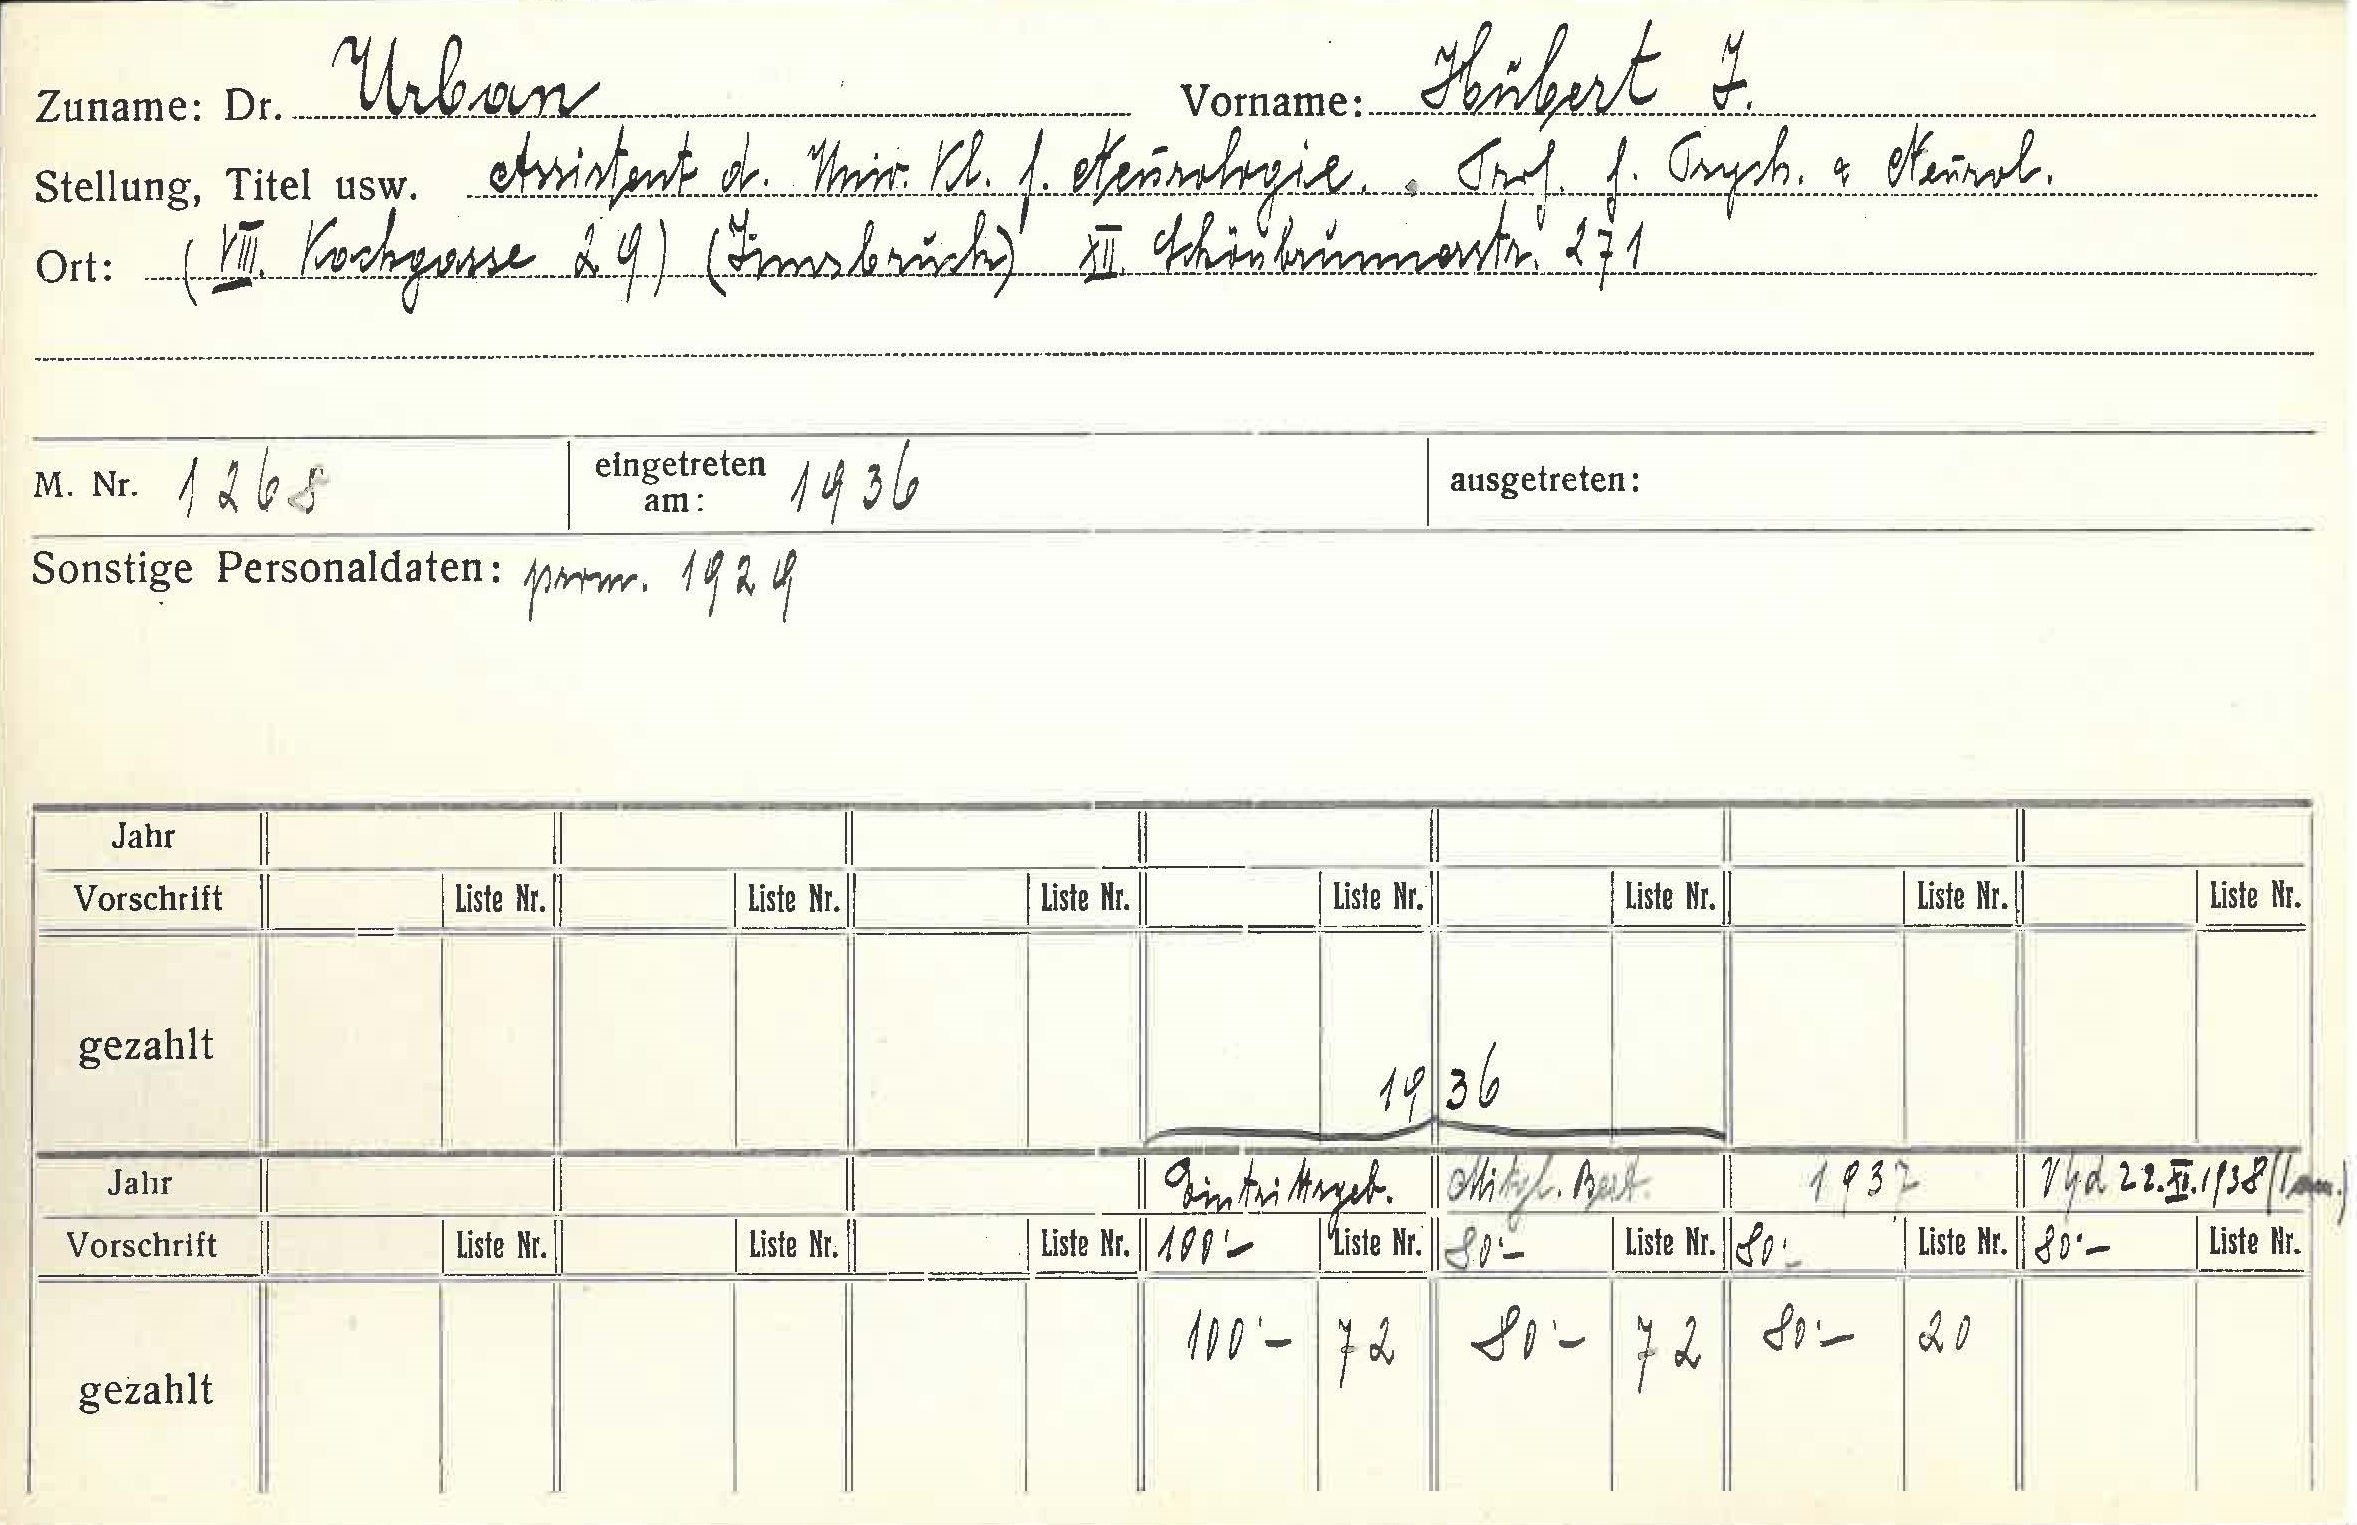 Zuname: Dr. Urban Vorname: Hubert J.
Stellung, Titel usw. Assistent d. Univ. Kl. f. Neurologie. Prof. f. Psych. & Neurol.
Ort: (VIII. Kochgasse 29) (Innsbruck) XII. Schönbrunnerstr. 271
M. Nr. 1268 eingetreten am: 1936 ausgetreten:
Sonstige Personaldaten: prom. 1929
Jahr
Vorschrift Liste Nr. Liste Nr. Liste Nr. Liste Nr. Liste Nr. Liste Nr. Liste Nr.
gezahlt
1936
Jahr Eintrittsgeb. Mitgl. Beit. 1937 22.XI.1938
Vorschrift Liste Nr. Liste Nr. Liste Nr. 100·– Liste Nr. 80·– Liste Nr. 80·– Liste Nr. 80·– Liste Nr.
gezahlt 100·– 72 80·– 72 80·– 20